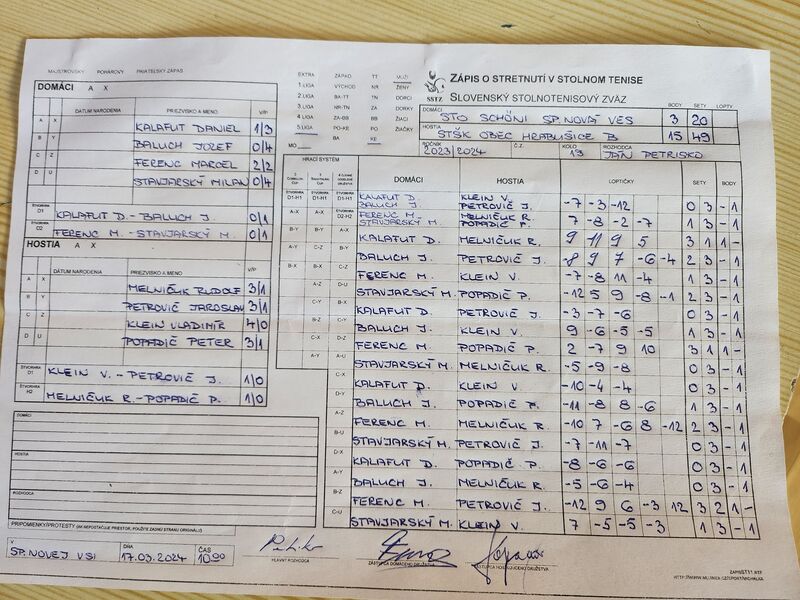 MAJSTROVSKÝ POHÁROVÝ PRIATEĽSKÝ ZÁPAS
DOMÁCI A X
DÁTUM NARODENIA PRIEZVISKO A MENO V/P
A X KALAFUT DANIEL 1/3
B Y BALUCH JOZEF 0/4
C Z FERENC MARCEL 2/2
D U STAVJARSKÝ MILAN 0/4
ŠTVORHRA D1 KALAFUT D. - BALUCH J. 0/1
ŠTVORHRA D2 FERENC M. - STAVJARSKÝ M. 0/1
HOSTIA A X
DÁTUM NARODENIA PRIEZVISKO A MENO V/P
A X MELNIČUK RUDOLF 3/1
B Y PETROVIČ JAROSLAV 3/1
C Z KLEIN VLADIMÍR 4/0
D U POPADIČ PETER 3/1
ŠTVORHRA D1 KLEIN V. - PETROVIČ J. 1/0
ŠTVORHRA H2 MELNIČUK R. - POPADIČ P. 1/0
DOMÁCI
HOSTIA
ROZHODCA
PRIPOMIENKY/PROTESTY (AK NEPOSTAČUJE PRIESTOR, POUŽITE ZADNÚ STRANU ORIGINÁLU)
V SP. NOVEJ VSI DŇA 17.03.2024 ČAS 10.00
EXTRA ZÁPAD TT MUŽI
1.LIGA VÝCHOD NR ŽENY
2.LIGA BA-TT TN DORCI
3.LIGA NR-TN ZA DORKY
4.LIGA ZA-BB BB ŽIACI
5.LIGA PO-KE PO ŽIAČKY
MO BA KE
SSTZ
ZÁPIS O STRETNUTÍ V STOLNOM TENISE
SLOVENSKÝ STOLNOTENISOVÝ ZVÄZ
BODY SETY LOPTY
DOMÁCI STO SCHÖNI SP. NOVÁ VES 3 20
HOSTIA STŠK OBEC HRABUŠICE B 15 49
ROČNÍK 2023/2024 Č.Z. KOLO 13 ROZHODCA JÁN PETRISKO
HRACÍ SYSTÉM DOMÁCI HOSTIA LOPTIČKY SETY BODY
ŠTVORHRA D1-H1 ŠTVORHRA D1-H1 ŠTVORHRA D1-H1 KALAFUT D. BALUCH J. KLEIN V. PETROVIČ J. -7 -3 -12 0 3 - 1
A-X A-X ŠTVORHRA D2-H2 FERENC M. STAVJARSKÝ M. MELNIČUK R. POPADIČ P. 7 -8 -2 -7 1 3 - 1
B-Y B-Y A-X KALAFUT D. MELNIČUK R. 9 11 9 5 3 1 1 -
A-Y C-Z B-Y BALUCH J. PETROVIČ J. -8 9 7 -6 -4 2 3 - 1
B-X B-X C-Z FERENC M. KLEIN V. -7 -8 11 -4 1 3 - 1
A-Z D-U STAVJARSKÝ M. POPADIČ P. -12 5 9 -8 -1 2 3 - 1
KALAFUT D. PETROVIČ J. -3 -7 -6 0 3 - 1
BALUCH J. KLEIN V. 9 -6 -5 -5 1 3 - 1
FERENC M. POPADIČ P. 2 -7 9 10 3 1 1 -
STAVJARSKÝ M. MELNIČUK R. -5 -9 -8 0 3 - 1
KALAFUT D. KLEIN V. -10 -4 -4 0 3 - 1
D-Y BALUCH J. POPADIČ P. -11 -8 8 -6 1 3 - 1
A-Z FERENC M. MELNIČUK R. -10 7 -6 8 -12 2 3 - 1
B-U STAVJARSKÝ M. PETROVIČ J. -7 -11 -7 0 3 - 1
D-X KALAFUT D. POPADIČ P. -8 -6 -6 0 3 - 1
A-Y BALUCH J. MELNIČUK R. -5 -6 -4 0 3 - 1
B-Z FERENC M. PETROVIČ J. -12 9 6 -3 12 3 2 1 -
C-U STAVJARSKÝ M. KLEIN V. 7 -5 -5 -3 1 3 - 1
HLAVNÝ ROZHODCA ZÁSTUPCA DOMÁCEHO DRUŽSTVA ZÁSTUPCA HOSŤUJÚCEHO DRUŽSTVA
ZAPISST11.RTF